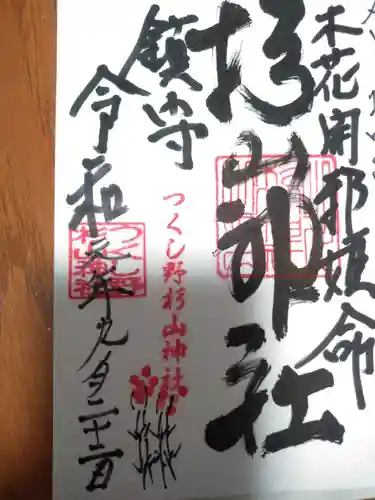 木花開耶姫命
杉山神社
鎮守
つくし野杉山神社
令和元年九月二十二日